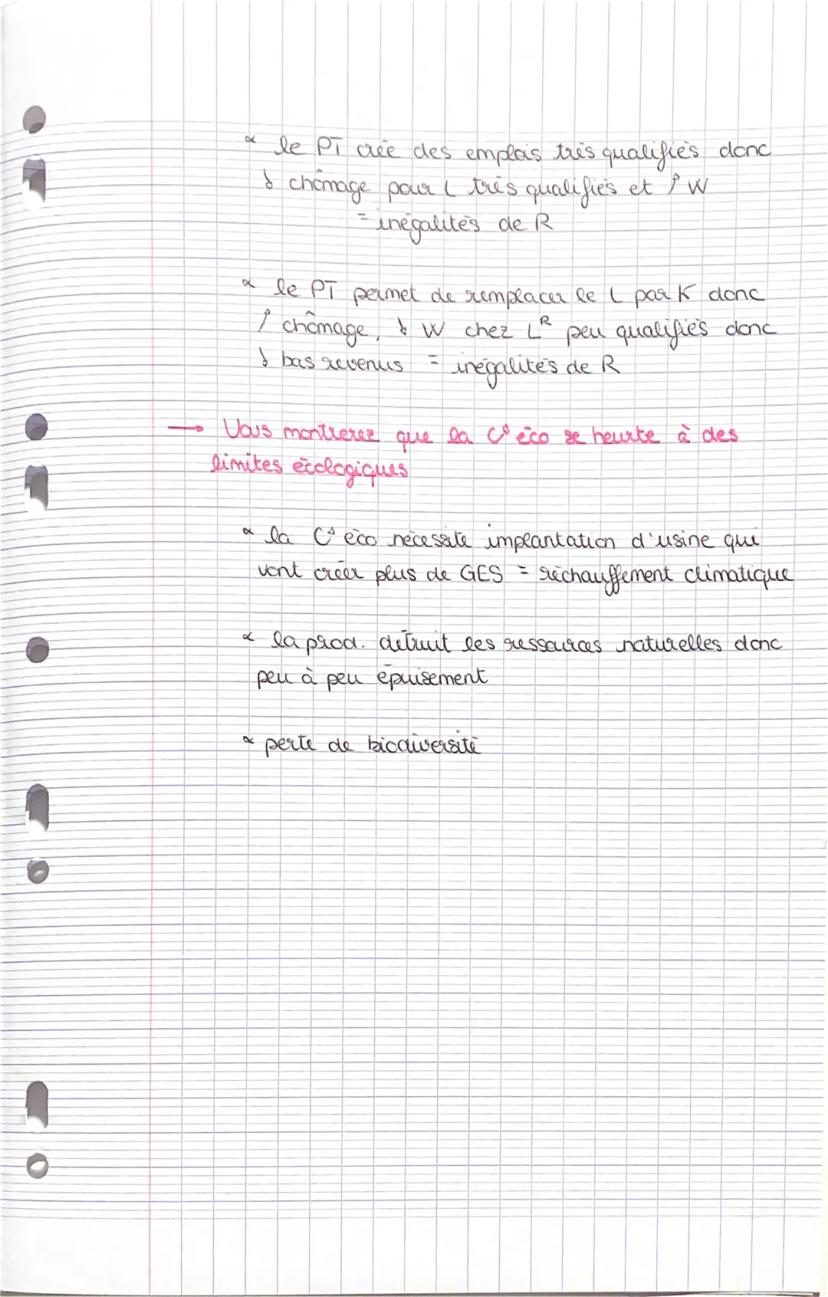 ∝ le PT crée des emplois très qualifiés donc
↓ chômage pour L très qualifiés et ↑ W
= inégalités de R
∝ le PT permet de remplacer le L par K donc
↑ chômage, ↓ W chez Lᴿ peu qualifiés donc
↓ bas revenus = inégalités de R
→ Vous montrerez que la C° éco se heurte à des
limites écologiques
∝ la C° éco nécessite implantation d'usine qui
vont créer plus de GES = réchauffement climatique
∝ la prod. détruit les ressources naturelles donc
peu à peu épuisement
∝ perte de biodiversité